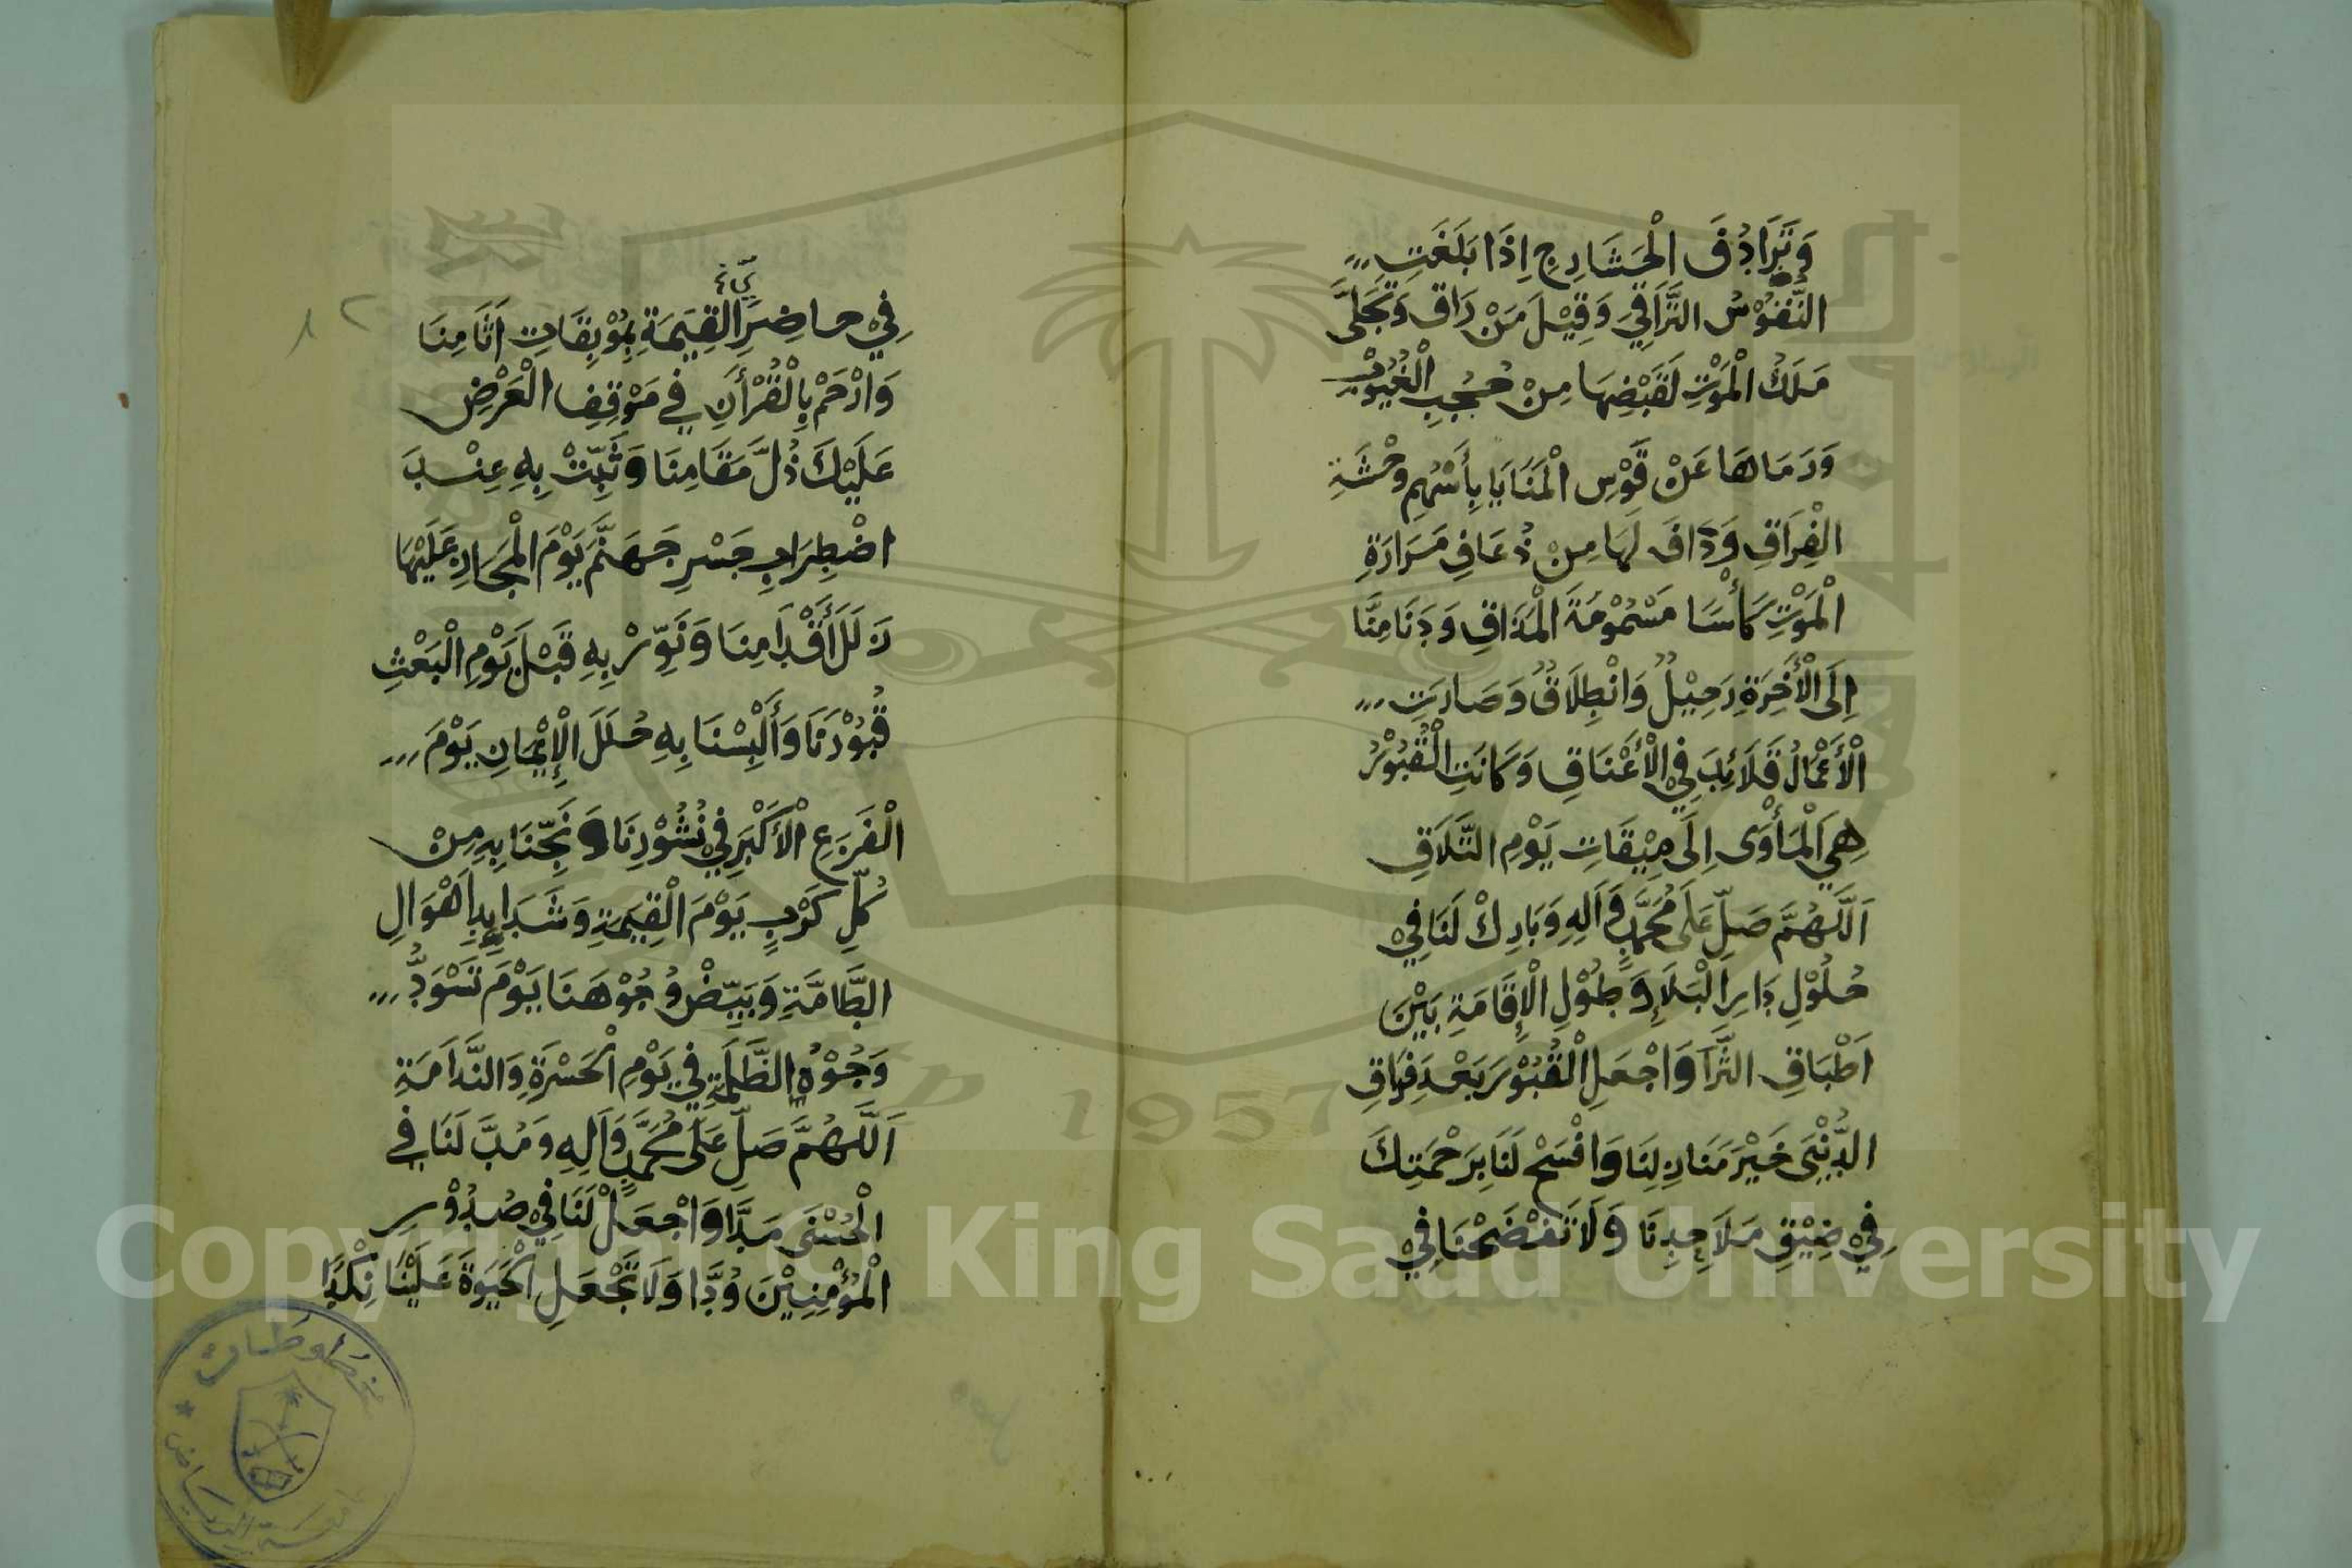 وَتَرَادُفَ الْحَشَارِجِ اِذَا بَلَغَتِ
النُّفُوْسُ التَّرَاقِيَ وَقِيْلَ مَنْ رَاقٍ وَتَجَلَّى
مَلَكُ الْمَوْتِ لِقَبْضِهَا مِنْ حُجُبِ الْغُيُوْبِ
وَرَمَاهَا عَنْ قَوْسِ الْمَنَايَا بِأَسْهُمِ وَحْشَةِ
الْفِرَاقِ وَدَافَ لَهَا مِنْ ذُعَافِ مَرَارَةِ
الْمَوْتِ كَأْسًا مَسْمُوْمَةَ الْمَذَاقِ وَدَنَا مِنَّا
اِلَى الْأَخِرَةِ رَحِيْلٌ وَانْطِلَاقٌ وَصَارَتِ
الْأَعْمَالُ قَلَائِدَ فِي الْأَعْنَاقِ وَكَانَتِ الْقُبُوْرُ
هِيَ الْمَأْوٰى اِلَى مِيْقَاتِ يَوْمِ التَّلَاقِ
اَللّٰهُمَّ صَلِّ عَلَى مُحَمَّدٍ وَاٰلِهِ وَبَارِكْ لَنَا فِيْ
حُلُوْلِ دَارِ الْبَلَاءِ وَطُوْلِ الْإِقَامَةِ بَيْنَ
اَطْبَاقِ الثَّرَا وَاجْعَلِ الْقُبُوْرَ بَعْدَ فِرَاقِ
الدُّنْيٰى خَيْرَ مَنَازِلِنَا وَافْسَحْ لَنَا بِرَحْمَتِكَ
فِيْ ضِيْقِ مَلَاحِدِنَا وَلَا تَفْضَحْنَا فِيْ
فِيْ حاضِرِي الْقِيٰمَةِ بِمُوْبِقَاتِ اٰثَامِنَا
وَارْحَمْ بِالْقُرْأٰنِ فِي مَوْقِفِ الْعَرْضِ
عَلَيْكَ ذُلَّ مَقَامِنَا وَثَبِّتْ بِهِ عِنْدَ
اضْطِرَابِ جَسْرِ جَهَنَّمَ يَوْمَ الْمَجَازِ عَلَيْهَا
زَلَلَ أَقْدَامِنَا وَنَوِّرْ بِهِ قَبْلَ يَوْمِ الْبَعْثِ
قُبُوْرَنَا وَأَلْبِسْنَا بِهِ حُلَلَ الْإِيْمَانِ يَوْمَ
الْفَزَعِ الْأَكْبَرِ فِيْ نُشُوْرِنَا وَنَجِّنَا بِهِ مِنْ
كُلِّ كَرْبٍ يَوْمَ الْقِيٰمَةِ وَشَدَايِدِ اَهْوَالِ
الطَّامَّةِ وَبَيِّضْ وُجُوْهَنَا يَوْمَ تَسْوَدُّ
وُجُوْهُ الظَّلَمَةِ فِي يَوْمِ الْحَسْرَةِ وَالنَّدَامَةِ
اَللّٰهُمَّ صَلِّ عَلَى مُحَمَّدٍ وَاٰلِهِ وَمُدَّ لَنَا فِي
الْحُسْنٰى مَدًّا وَاجْعَلْ لَنَا فِيْ صُدُوْرِ
الْمُؤْمِنِيْنَ وُدًّا وَلَا تَجْعَلِ الْحَيٰوةَ عَلَيْنَا نِكْدًا
مخطوطات
جامعة الرياض
1957
Copyright © King Saud University